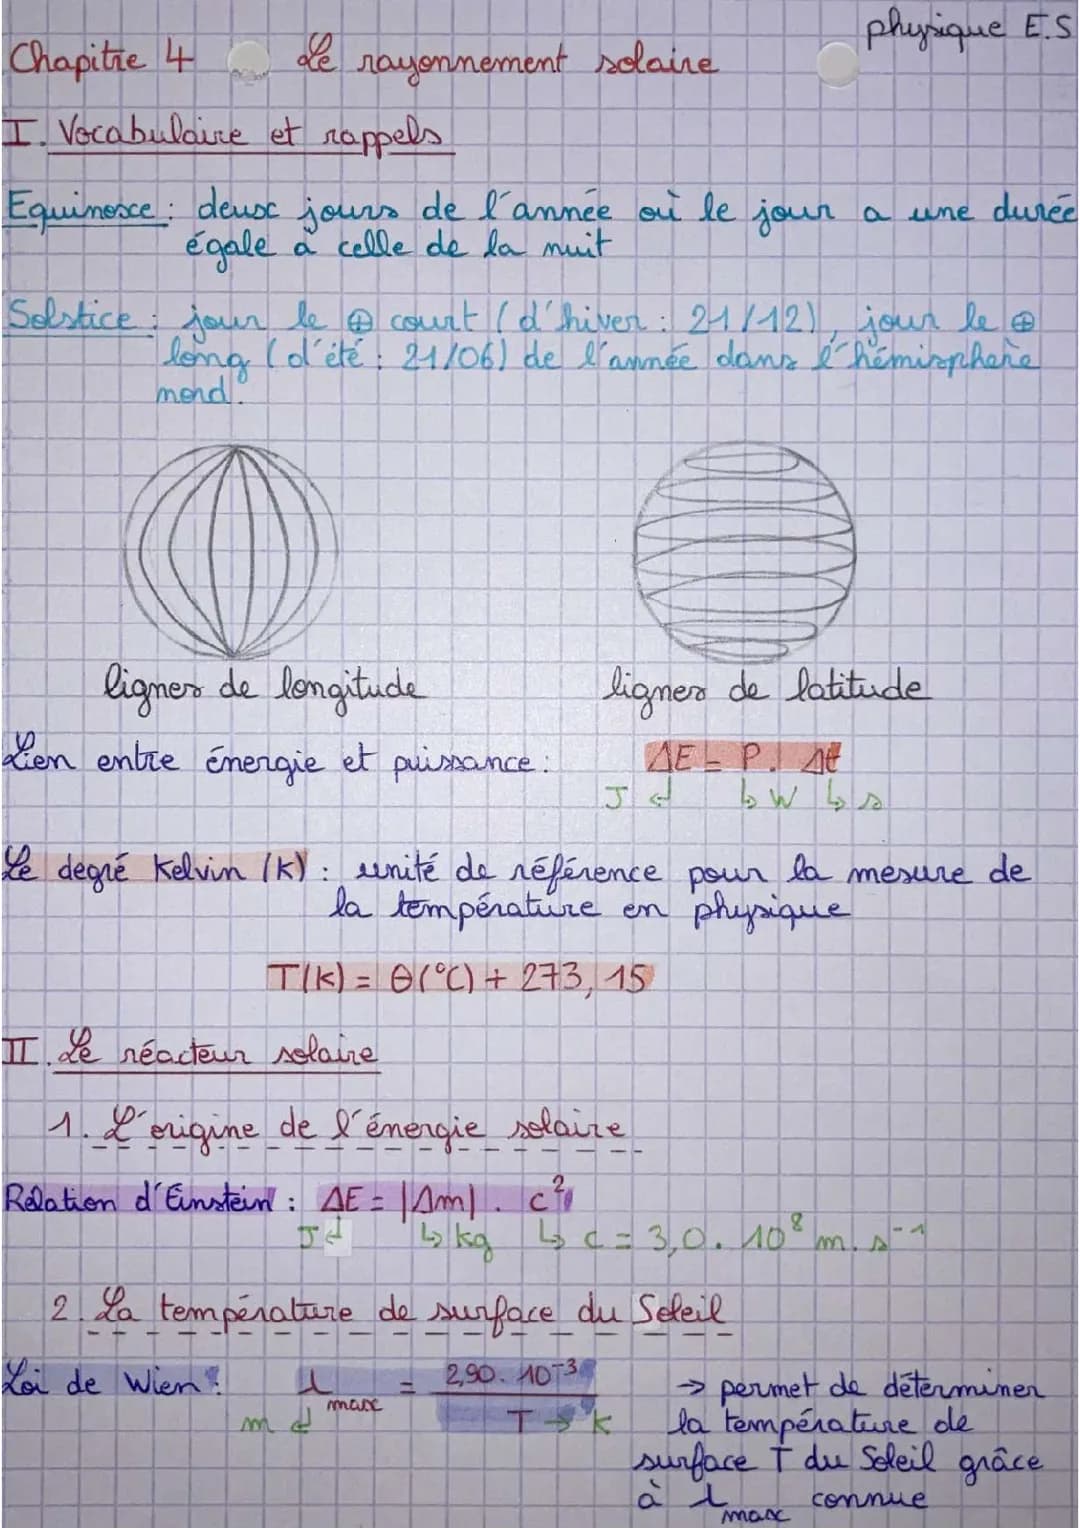 physique E.S
Chapitre 4 Le rayonnement solaire
I. Vocabulaire et rappels
Equinoxe : deux jours de l'année où le jour a une durée
égale à celle de la nuit
Solstice : jour le ⊕ court (d'hiver : 21/12), jour le ⊕
long (d'été : 21/06) de l'année dans l'hémisphère
nord.
lignes de longitude lignes de latitude
Lien entre énergie et puissance : ΔE = P. Δt
J ↲ ↳ W ↳ s
Le degré Kelvin (K) : unité de référence pour la mesure de
la température en physique
T(K) = θ(°C) + 273,15
II. Le réacteur solaire
1. L'origine de l'énergie solaire
Relation d'Einstein : ΔE = |Δm| . c²
J ↲ ↳ kg ↳ c = 3,0. 10⁸ m. s⁻¹
2. La température de surface du Soleil
Loi de Wien : λmax = 2,90. 10⁻³ → permet de déterminer
m ↲ T → K la température de
surface T du Soleil grâce
à λmax connue